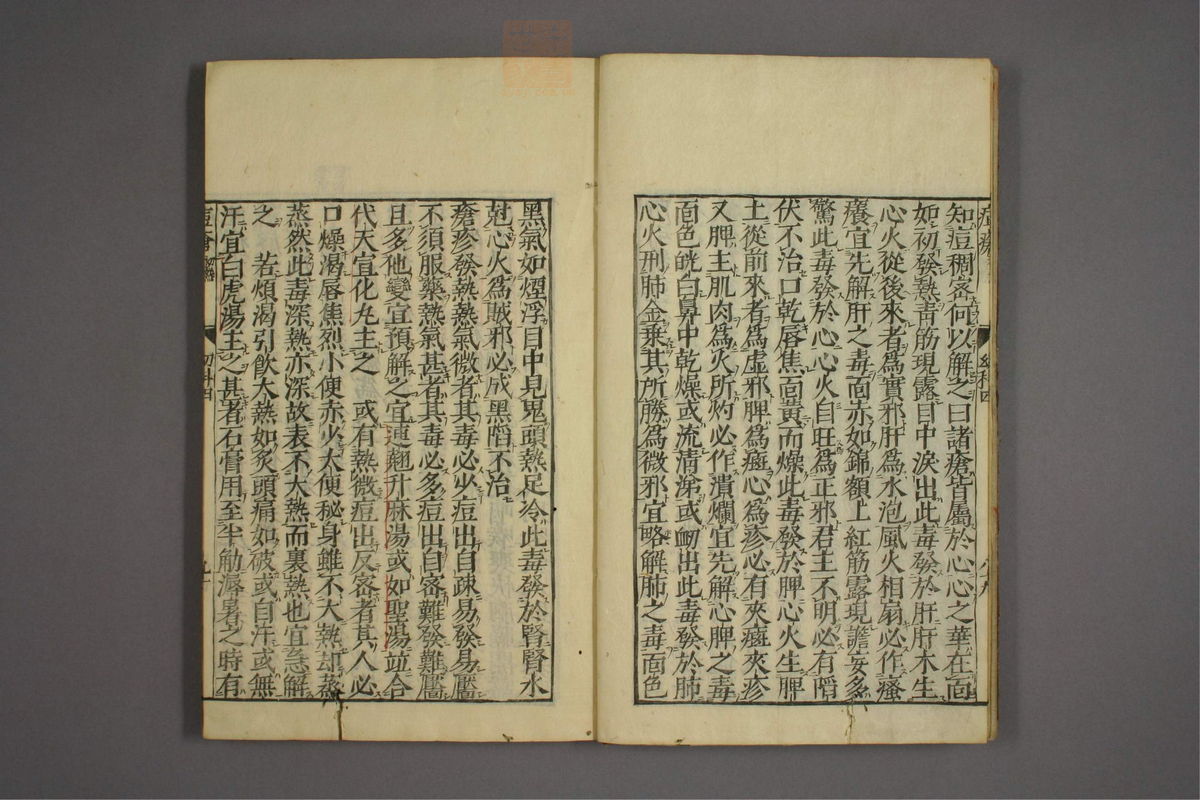 知痘稠密何以解之曰諸瘡皆屬於心心之華在面
如初發熱青筋現露目中淚出此毒發於肝肝木生
心火從後來者爲實邪肝爲水泡風火相扇必作瘙
癢宜先解肝之毒面赤如錦額上紅筋露現譫妄多
驚此毒發於心心火自旺爲正邪君主不明必有陷
伏不治口乾唇焦面黄而燥此毒發於脾心火生脾
土從前來者爲虚邪脾爲癍心爲疹必有夾癍夾疹
又脾主肌肉爲火所灼必作潰爛宜先解心脾之毒
面色皝白鼻中乾燥或流清涕或衂出此毒發於肺
心火刑肺金乘其所勝爲微邪宜略解肺之毒面色
黑氣如煙浮目中見鬼頭熱足冷此毒發於腎腎水
尅心火爲賊邪必成黑陷不治
瘡疹發熱熱氣微者其毒必少痘出自疎易發易靨
不須服藥熱氣甚者其毒必多痘出自密難發難靨
且多他變宜預解之宜連翹升麻湯或如聖湯竝合
代天宜化丸主之 或有熱微痘出反密者其人必
口燥渴唇焦烈小便赤少大便秘身雖不大熱却蒸
蒸然此毒深熱亦深故表不大熱而裏熱也宜急解
之 若煩渴引飲大熱如炙頭痛如破或自汗或無
汗宜白虎湯主之甚者石膏用至半觔溽暑之時有
幼科四
幼科四